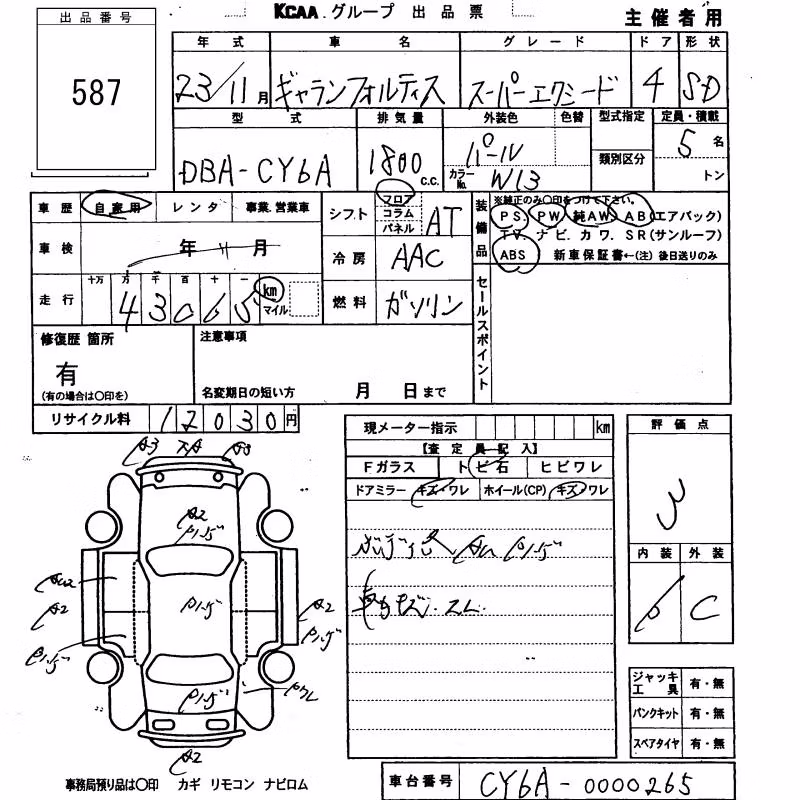 KCAA グループ 出品票
主催者用
出品番号
587
年式 車名 グレード ドア 形状
23/11月 ギャランフォルティス スーパーエクシード 4 S-D
型式 排気量 外装色 色替 型式指定 定員・積載
DBA-CY6A 1800 C.C. パール 類別区分 5名
カラーNo. W13 トン
車歴 自家用 レンタ 事業.営業車
シフト フロア コラム パネル AT
装備品 ※純正のみ〇印をつけて下さい。
PS. PW 純AW AB(エアバック)
TV. ナビ. カワ. SR(サンルーフ)
ABS 新車保証書←(注) 後日送りのみ
車検 年 月
冷房 AAC
走行 十万 万 千 百 十 一
43065 km マイル
燃料 ガソリン
セールスポイント
修復歴 箇所
有
(有の場合は〇印を)
注意事項
名変期日の短い方 月 日まで
リサイクル料 12030円
現メーター指示 km
【査定員記入】
Fガラス トビ石 ヒビワレ
ドアミラー キズ・ワレ ホイール(CP) キズ・ワレ
評価点
3
内装 外装
C
A2
A2
A2
A2
ジャッキ工具 有・無
パンクキット 有・無
スペアタイヤ 有・無
事務局預り品は〇印 カギ リモコン ナビロム
車台番号 CY6A-0000265